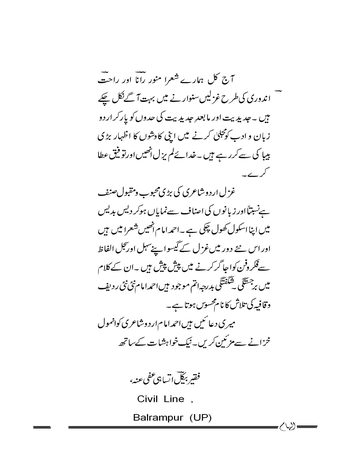 آج کل ہمارے شعرا منور رانا اور راحت
اندوری کی طرح غزلیں سنوارنے میں بہت آگے نکل چکے
ہیں ۔ جدیدیت اور مابعد جدیدیت کی حدوں کو پار کر اردو
زبان و ادب کو مجلیٰ کرنے میں اپنی کاوشوں کا اظہار بڑی
بیباکی سے کر رہے ہیں ۔ خدائے لم یزل انھیں اور توفیق عطا
کرے ۔
غزل اردو شاعری کی بڑی محبوب و مقبول صنف
ہے نسبتاً اور زبانوں کی اصناف سے نمایاں ہوکر دیس بدیس
میں اپنا اسکول کھول چکی ہے ۔ احمد امام انھیں شعرا میں ہیں
اور اس نئے دور میں غزل کے گیسو اپنے سہل اور سجل الفاظ
سے فکر و فن کو اجاگر کرنے میں پیش پیش ہیں ۔ ان کے کلام
میں برجستگی ۔ شگفتگی بدرجہ اتم موجود ہیں احمد امام نئی نئی ردیف
و قافیہ کی تلاش کا نام محسوس ہوتا ہے ۔
میری دعائیں ہیں احمد امام اردو شاعری کو انمول
خزانے سے مزئین کریں ۔ نیک خواہشات کے ساتھ
فقیر بیکل اتساہی عفی عنہ،
Civil Line ,
Balrampur (UP)